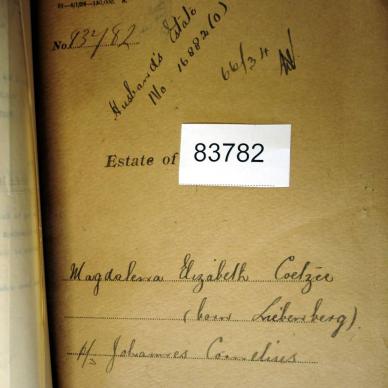 No. 83782
Husband's Estate
No. 16882(0)
66/34
Estate of
83782
Magdalena Elizabeth Coetzee
(born Liebenberg).
Johannes Cornelises